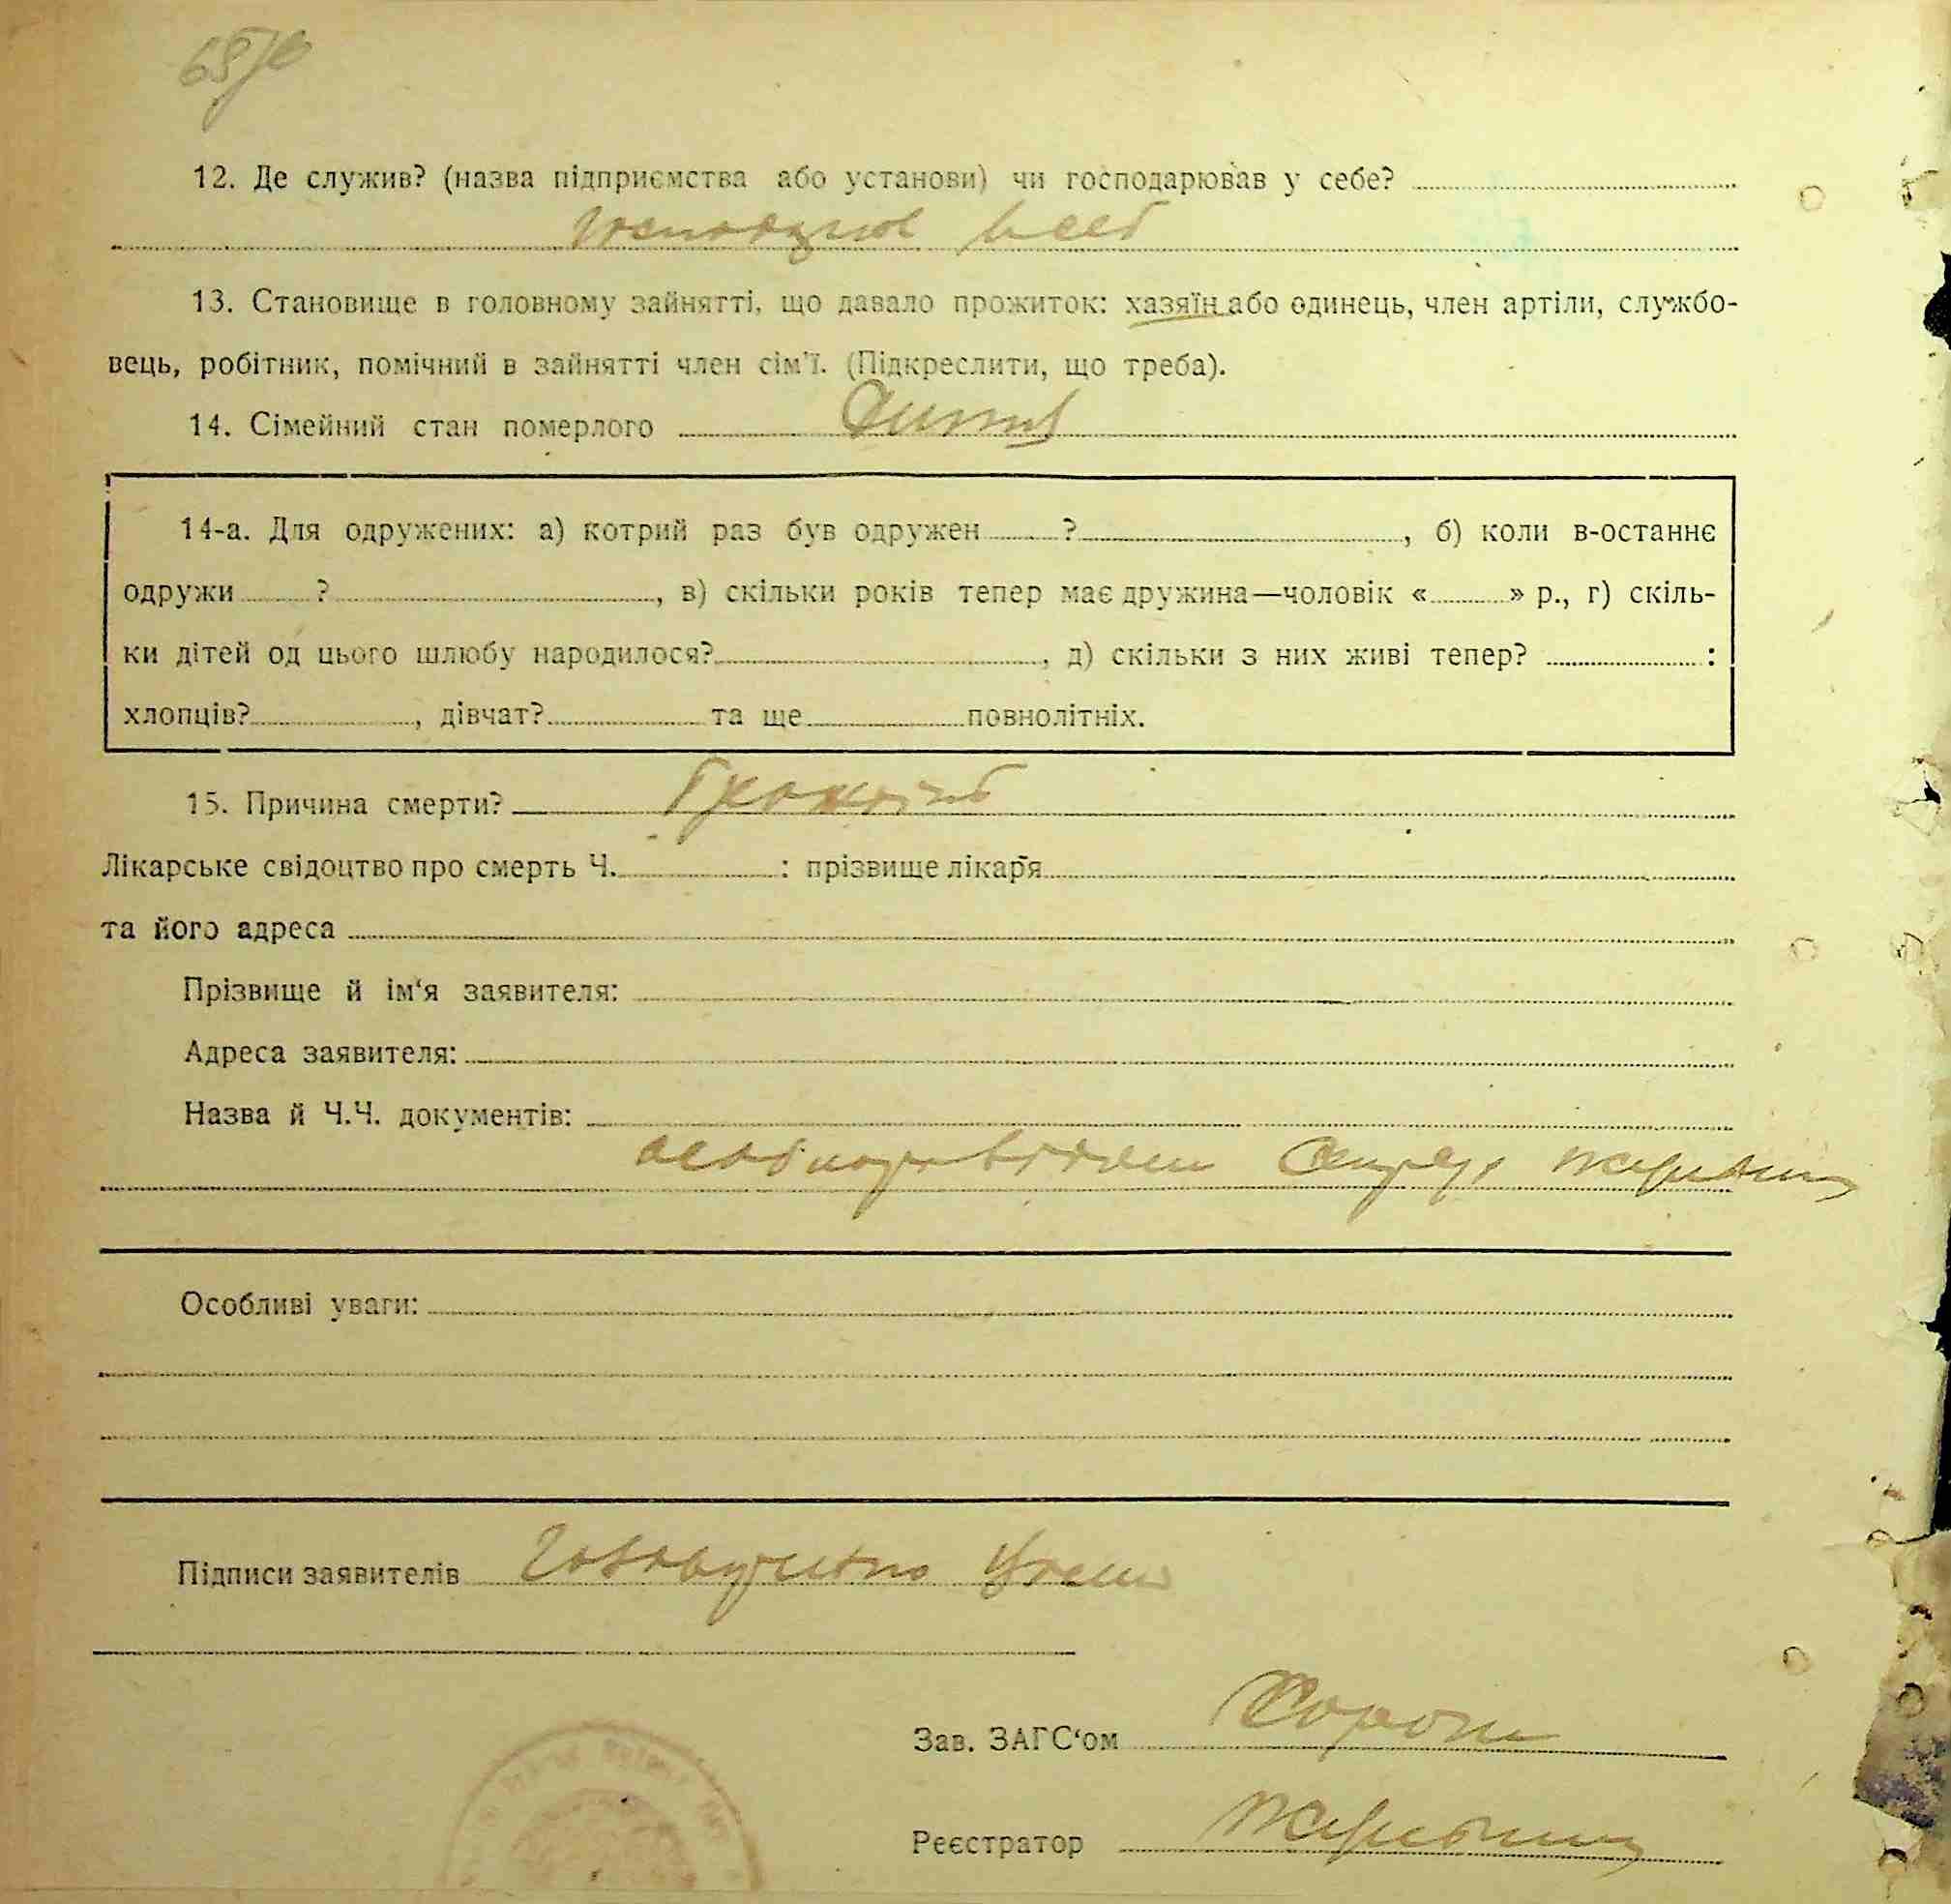 12. Де служив? (назва підприємства або установи) чи господарював у себе?
господарював в себе
13. Становище в головному зайнятті, що давало прожиток: хазяїн або одинець, член артіли, службо-
вець, робітник, помічний в зайнятті член сім'ї. (Підкреслити, що треба).
14. Сімейний стан померлого
14-а. Для одружених: а) котрий раз був одружен ? , б) коли в-останнє
одружи ? , в) скільки років тепер має дружина—чоловік « » р., г) скіль-
ки дітей од цього шлюбу народилося? , д) скільки з них живі тепер? :
хлопців? , дівчат? та ще повнолітніх.
15. Причина смерти?
Лікарське свідоцтво про смерть Ч. : прізвище лікар'я
та його адреса
Прізвище й ім'я заявителя:
Адреса заявителя:
Назва й Ч.Ч. документів:
Особливі уваги:
Підписи заявителів
Зав. ЗАГС'ом
Реєстратор